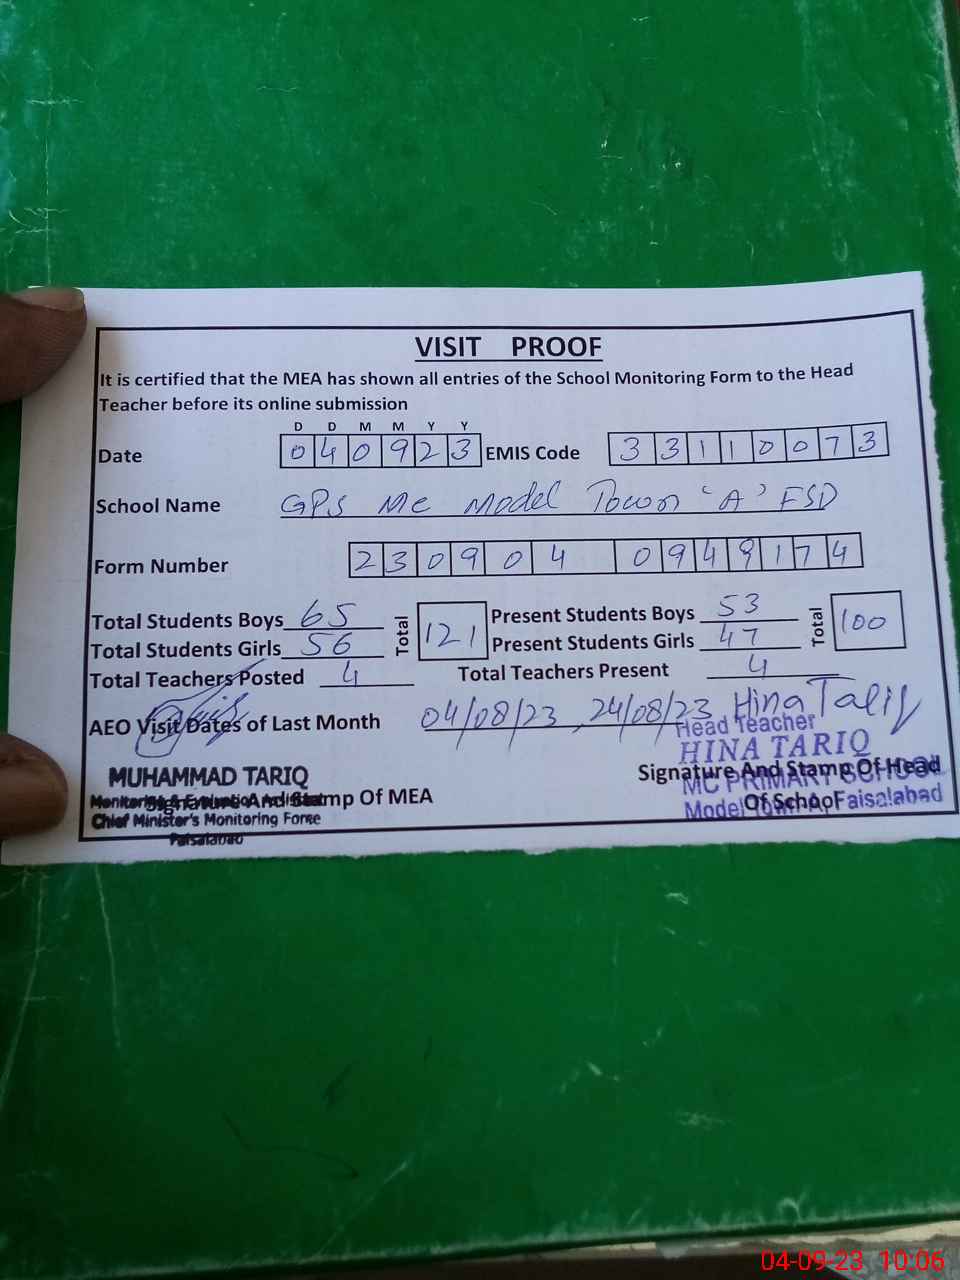 VISIT PROOF
It is certified that the MEA has shown all entries of the School Monitoring Form to the Head
Teacher before its online submission
D D M M Y Y
Date 040923 EMIS Code 33110073
School Name GPS MC Model Town 'A' FSD
Form Number 230904 0949174
Total Students Boys 65 Total 121 Present Students Boys 53 Total 100
Total Students Girls 56 Present Students Girls 47
Total Teachers Posted 4 Total Teachers Present 4
AEO Visit Dates of Last Month 04/08/23, 24/08/23 Hina Tariq
Head Teacher
HINA TARIQ
MUHAMMAD TARIQ Signature And Stamp Of Head
MC PRIMARY SCHOOL
Signature And Stamp Of MEA Of School
Monitoring & Evaluation Assistant Model Town A, Faisalabad
Chief Minister's Monitoring Force
Faisalabad
04-09-23 10:06